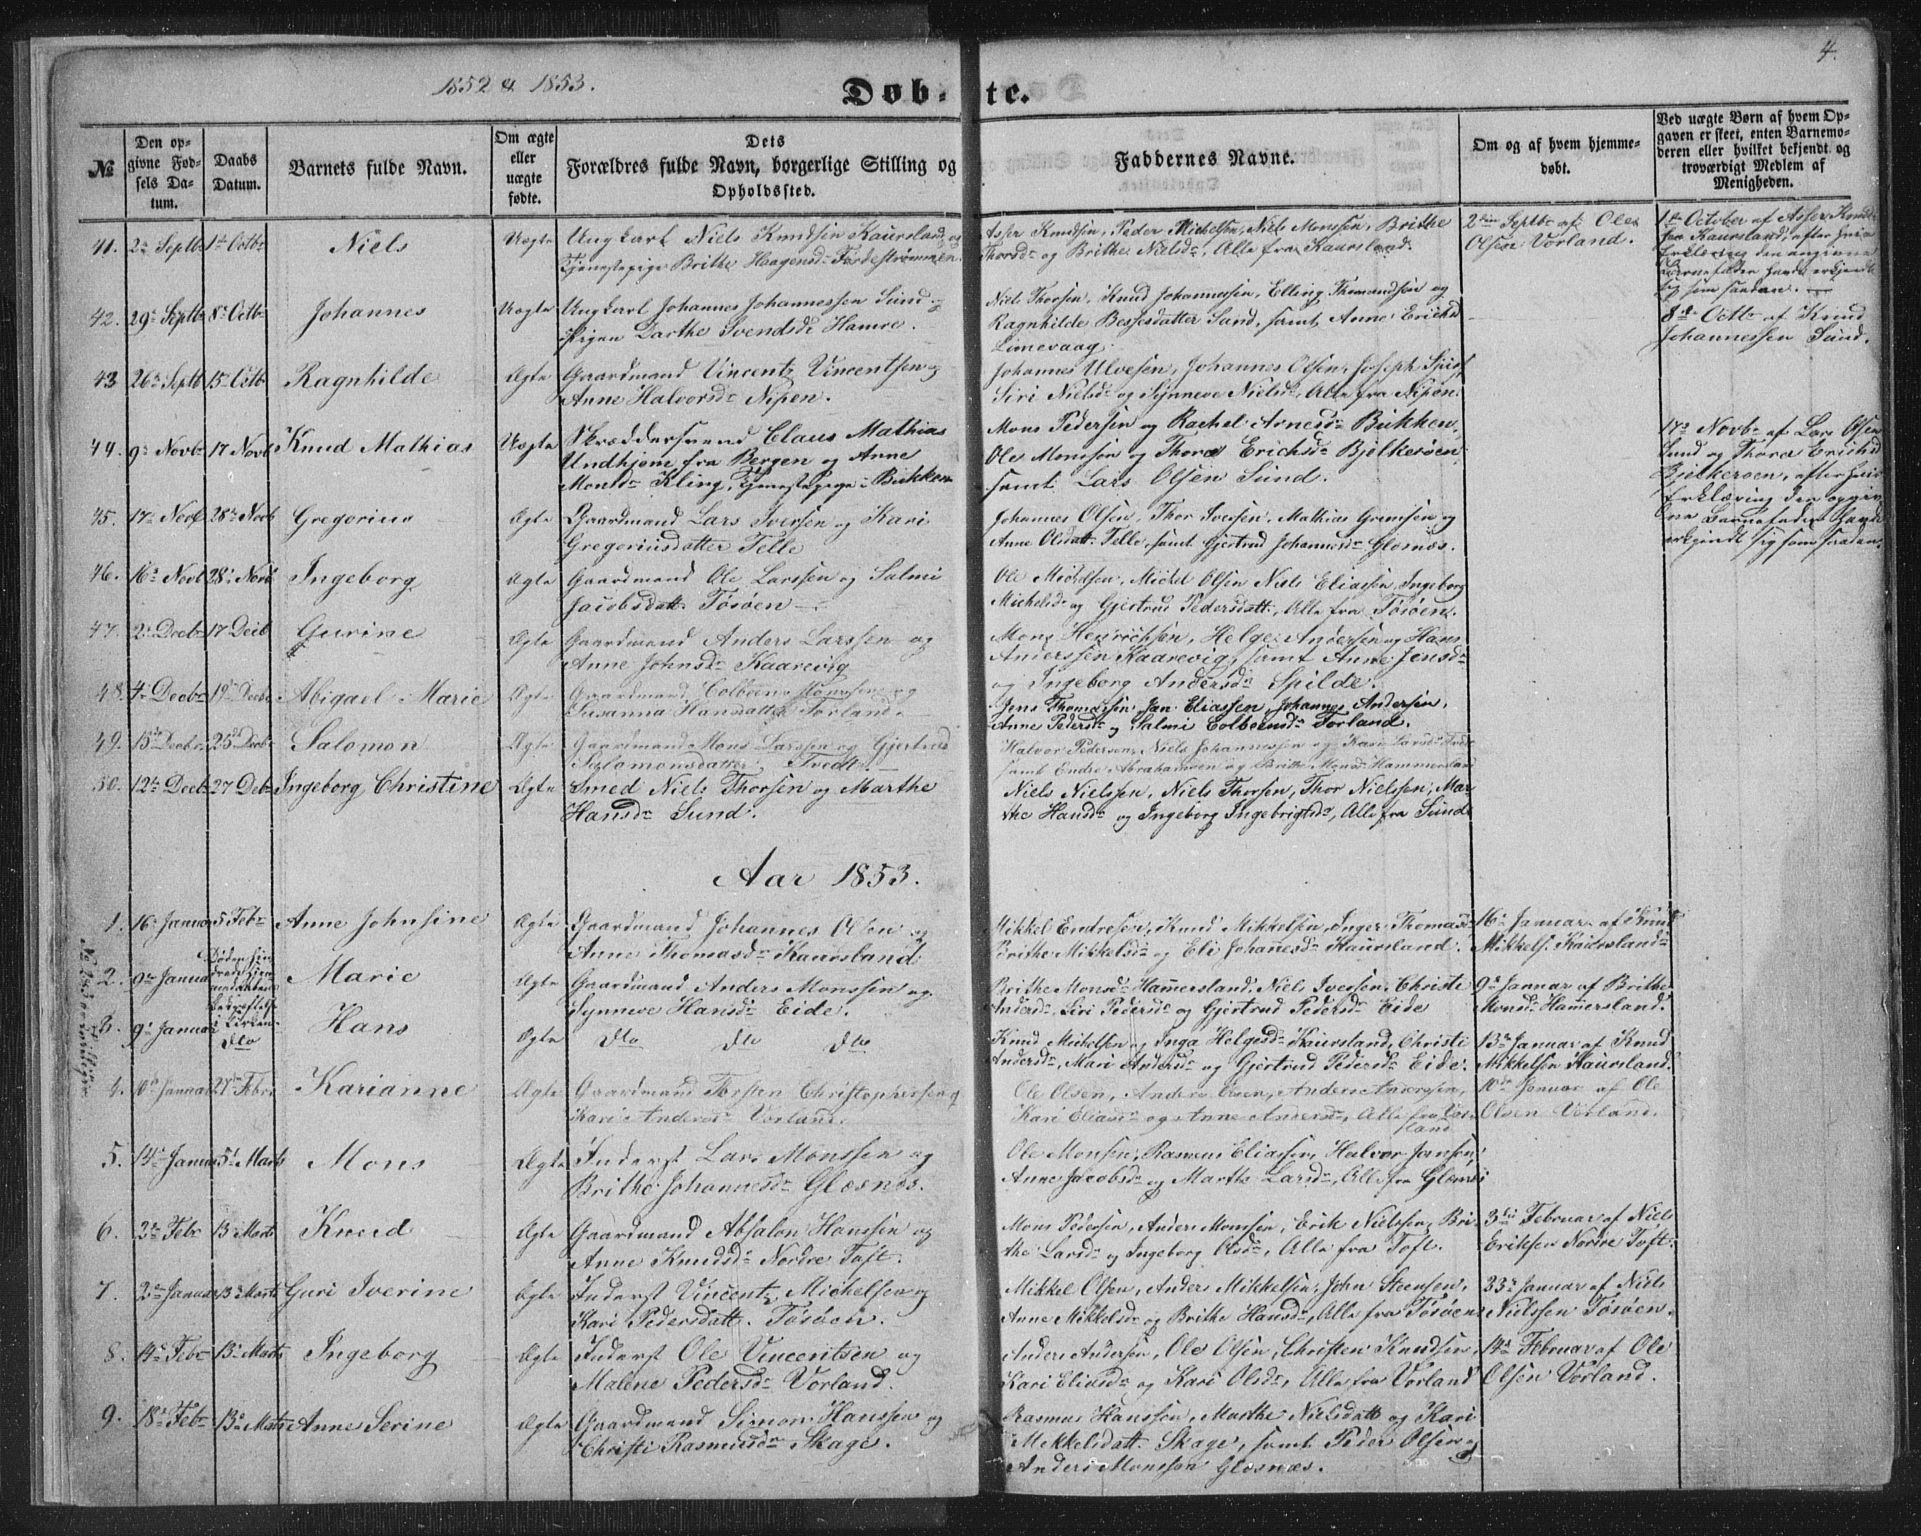 4.
1852 & 1853.
Døb-te.
№
Den op-
givne Fød-
sels Da-
tum.
Daabs
Datum.
Barnets fulde Navn.
Om ægte
eller
uægte
fødte.
Dets
Forældres fulde Navn, borgerlige Stilling og
Opholdssted.
Faddernes Navne.
Om og af hvem hjemme-
døbt.
Ved uægte Børn af hvem Op-
gaven er skeet, enten Barnemo-
deren eller hvilket bekjendt og
troværdigt Medlem af
Menigheden.
41. 2n Septbr 1ste Octbr Niels Uægte Ungkarl Niels Knudsen Kaursland og
Tjenestepige Brithe Haagensdr Førdestrømmen.
Asser Knudsen, Peder Michelsen, Niels Monssen, Brithe
Thorsdr og Brithe Nielsdr, Alle fra Kaursland.
2den Septbr af Ole
Olsen Vorland.
1ste October af Asser Knuds
fra Kaursland, efter hvis
den angivne
Barnefader havde erkjendt
sig som saadan.
42. 29n Septbr 8n Octbr Johannes Uægte Ungkarl Johannes Johannessen Sund og
Pigen Darthe Svendsdr Hamre.
Niels Thorsen, Knud Johannessen, Elling Thomassen og
Ragnhilde Bessesdatter Sund, samt Anne Erichsd
Limevaag.
8de Octbr af Knud
Johannessen Sund.
43 26n Septb 15n Octb Ragnhilde Ægte Gaardmand Vincentz Vincentsen og
Anne Halvorsdr Nipen.
Johannes Ulvesen, Johannes Olsen, Joseph
Siri Nielsdr og Synneve Nielsdr, Alle fra Nipen.
44. 9n Novbr 17 Novb Knud Mathias Uægte Skræddersvend Claus Mathias
Undhjem fra Bergen og Anne
Monsdr Kling, Tjenestepige i Bukken
Mons Pedersen og Rachel Arnesdr Bukken,
Ole Monssen og Thora Erichsdr Bjelkerøen
samt Lars Olsen Sund.
17n Novbr af Lars Olsen
Sund og Thora Erichsd
Bjelkerøen, efter hvis
Erklæring den opgiv-
ne Barnefader havde
erkjendt sig som saadan.
45. 17n Novb 28n Novb Gregorius Ægte Gaardmand Lars Iversen og Kari
Gregoriusdatter Telle
Johannes Olsen, Thor Iversen, Mathias Grimsen og
Anne Olsdatt. Telle, samt Gjertrud Johannesdr Glæsnæs.
46. 16n Novb 28n Novb Ingeborg Ægte Gaardmand Ole Larssen og Salmi
Jacobsdatt. Tøsøen
Ole Michelsen, Michel Olsen Niels Eliassen, Ingeborg
Michelsdr og Gjertrud Pedersdatt., Alle fra Tøsøen.
47. 2n Decbr 17 Decb Gurine Ægte Gaardmand Anders Larssen og
Anne Johnsdr Kaarevig
Mons Henrichsen, Helge Andersen og Hans
Anderssen Kaarevig, samt Anne Jensdr
og Ingeborg Andersdr Spilde.
48. 4n Decbr 19n Decbr Abigael Marie Ægte Gaardmand Colbeen Monssen og
Susanna Hansdatter Forland.
Jens Thomassen, Jan Eliassen, Johannes Andersen,
Anne Pedersdr og Salmi Colbeensdr Forland.
49. 15n Decbr 25n Decbr Salomon Ægte Gaardmand Mons Larssen og Gjertrud
Salomonsdatter Tvedt.
Halvor Pedersen, Niels Johannessen og Kari Larsdr Tvedt
samt Endre Abrahamsen og Brithe Monsdr Hammersland
50. 12te Decbr 27 Decbr Ingeborg Christine Ægte Smed Niels Thorsen og Marthe
Hansdr Sund.
Niels Nielssen, Niels Thorsen, Thor Nielssen, Mar-
the Hansdr og Ingeborg Ingebrigtsdr, Alle fra Sund
Aar 1853.
1. 16n Januar 5 Febr Anne Johnsine Ægte Gaardmand Johannes Olsen og
Anne Thomasdr Kaursland.
Mikkel Endresen, Knud Mikkelsen, Inger Thomasdr
Brithe Mikkelsdr og Eli Johannesdr Kaursland.
16n Januar af Knud
Mikkels. Kaursland
2. 9n Januar Døden hin-
drede hjem-
medaabens
Bekræftelse
i Kirken. Marie Ægte Gaardmand Anders Monssen og
Synneve Hansdr Eide.
Brithe Monsdr Hammersland, Niels Iversen, Christi
Andersdr, Siri Pedersdr og Gjertrud Pedersdr Eide
9n Januar af Brithe
Monsdr Hammersland.
3. 9n Januar Dto Hans Ægte Dto Dto Dto
Knud Michelsen og Inga Helgesdr Kaursland, Christi
Andersdr, Mari Andersdr og Gjertrud Pedersdr Eide.
13n Januar af Knud
Mikkelsen Kaursland.
No 2 & 3 ere Tvillinger
4. 10n Januar 27n Febr Karianne Ægte Gaardmand Torsten Christophersen og
Kari Andersdr Vorland.
Ole Olsen, Anders Olsen, Anders Andersen,
Kari Eliasdr og Anne Andersdr, Alle fra Vor-
land
10n Januar af Ole
Olsen Vorland.
5. 14n Januar 5n Marts Mons Ægte Inderst Lars Monssen og
Brithe Johannesdr Glæsnæs.
Ole Monsen, Rasmus Eliassen, Halvor Jansen,
Anne Jacobsdr og Marthe Larsdr, Alle fra Glæsnæs
6. 2n Febr 13 Marts Knud Ægte Gaardmand Absalon Hanssen og
Anne Knudsdr Nordre Toft.
Mons Pedersen, Anders Monssen, Erik Nielssen, Bri-
the Larsdr og Ingeborg Olsdr, Alle fra Toft.
3die Februar af Niels
Eriksen Nordre Toft.
7. 2n Januar 13 Marts Guri Iverine Ægte Inderst Vincentz Michelsen og
Kari Pedersdatt. Tøsøen.
Mikkel Olsen, Anders Mikkelsen, John Steensen,
Anne Mikkelsdr og Brithe Hansdr, Alle fra Tøsøen
23n Januar af Niels
Nielssen Tøsøen.
8. 14n Febr 13n Marts Ingeborg Ægte Inderst Ole Vincentsen og
Malene Pedersdr Vorland.
Anders Andersen, Ole Olsen, Christen Knudsen,
Kari Eliasdr og Kari Olsdr, Alle fra Vorland
14n Februar af Ole
Olsen Vorland.
9. 18n Febr 13n Marts Anne Serine Ægte Gaardmand Simon Hanssen og
Christi Rasmusdr Skage.
Rasmus Hanssen, Marthe Nielsdatt og Kari
Mekkelsdatt. Skage, samt Peder Olsen og
Anders Monssen Glæsnæs.